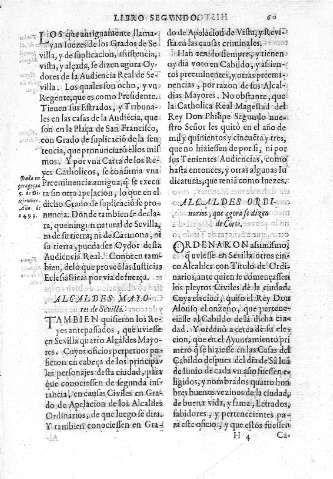 LIBRO SEGVNDO. 60
LOS que antiguamente llama-
van Iuezes de los Grados de Se-
villa, y de suplicacion, asistencia,
vista, y alçada, se dizen agora Oy-
dores de la Audiencia Real de Se-
villa. Los quales son ocho, y vn
Regente, que es como Presidente.
Tienen sus Estrados, y Tribuna-
les en las casas de la Audiẽcia, que
son en la Plaça de San Francisco,
con Grado de suplicació de la sen-
tencia, que pronuncian ellos mis-
mos. Y por vna Carta de los Re-
yes Catholicos, se co
Preeminencia antigua, q̃ se exerza
sin otra apelacion, lo que en el
dicho Grado de suplicació se pro-
nuncia. Donde tambien se decla-
ra, que ningun natural de Sevilla,
ni de su tierra, ni de Carmona, ni
su tierra, pueda ser Oydor desta
Audiencia Real. Conocen tam-
bien, de lo que proveẽ las Iusticias
Ecclesiasticas por via de fuerça.
1493.
ALCALDES MAYO-
res de Sevilla.
TAMBIEN quisieron los Re-
yes antepassados, que vviesse
en Sevilla quatro Alcaldes Mayo-
res. Cuyos oficios perpetuos pu-
sieron en cabeça de los principales
personajes desta ciudad, para
que conociessen de segunda ins-
tancia, en causas Civiles en Gra-
do de Apelacion de los Alcaldes
Ordinarios, de que luego se dira.
Y tambien conociessen en Gra-
do de Apelacion de Vista, y Revi-
sta en las causas criminales.
Han venido siempre, y oy en
dia voto en Cabildo, y assien-
to preeminente, y otras preemi-
nencias, por razon de sus Alcal-
dias Mayores. No obstante, que
la Catholica Real Magestad del
Rey Don Phelipe Segundo nue-
stro Señor les quitó en el año de
mil y quinientos y cincuẽta y tres,
que no hiziessen de por si, ni por
sus Tenientes Audiencias, como
hasta entonces, y otras algunas Iu-
dicaturas, que tenia como juezes.
ALCALDES ORDI-
narios, que agora se dizen
de Corte.
ORDENARON assimismo,
q̃ vviesse en Sevilla otros cin-
co Alcaldes con Titulo de Ordi-
narios, ante quien se començassen
los pleytos Civiles de la ciudad.
Cuya eleccion, quiso el Rey Don
Alonso el Onzeno, que pertene-
ciesse al Cabildo de la dicha ciu-
dad. Y ordenò a cerca de su elec-
cion, que en el Ayuntamiento pri-
mero q̃ se hiziesse en las Casas del
Cabildo despues del dia de Sã Iuã
de Iunio de cada vn año fuessen e-
ligidos, y nombrados quatro hom-
bres buenos vezinos de la ciudad,
de buena vida, y fama, Letrados,
sabidores, y pertenecientes pa-
ra este oficio, y que estos fuessen
H 4 Ca-